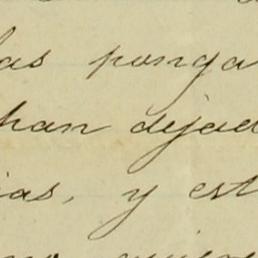 las ponga
han dejad
ias, y est